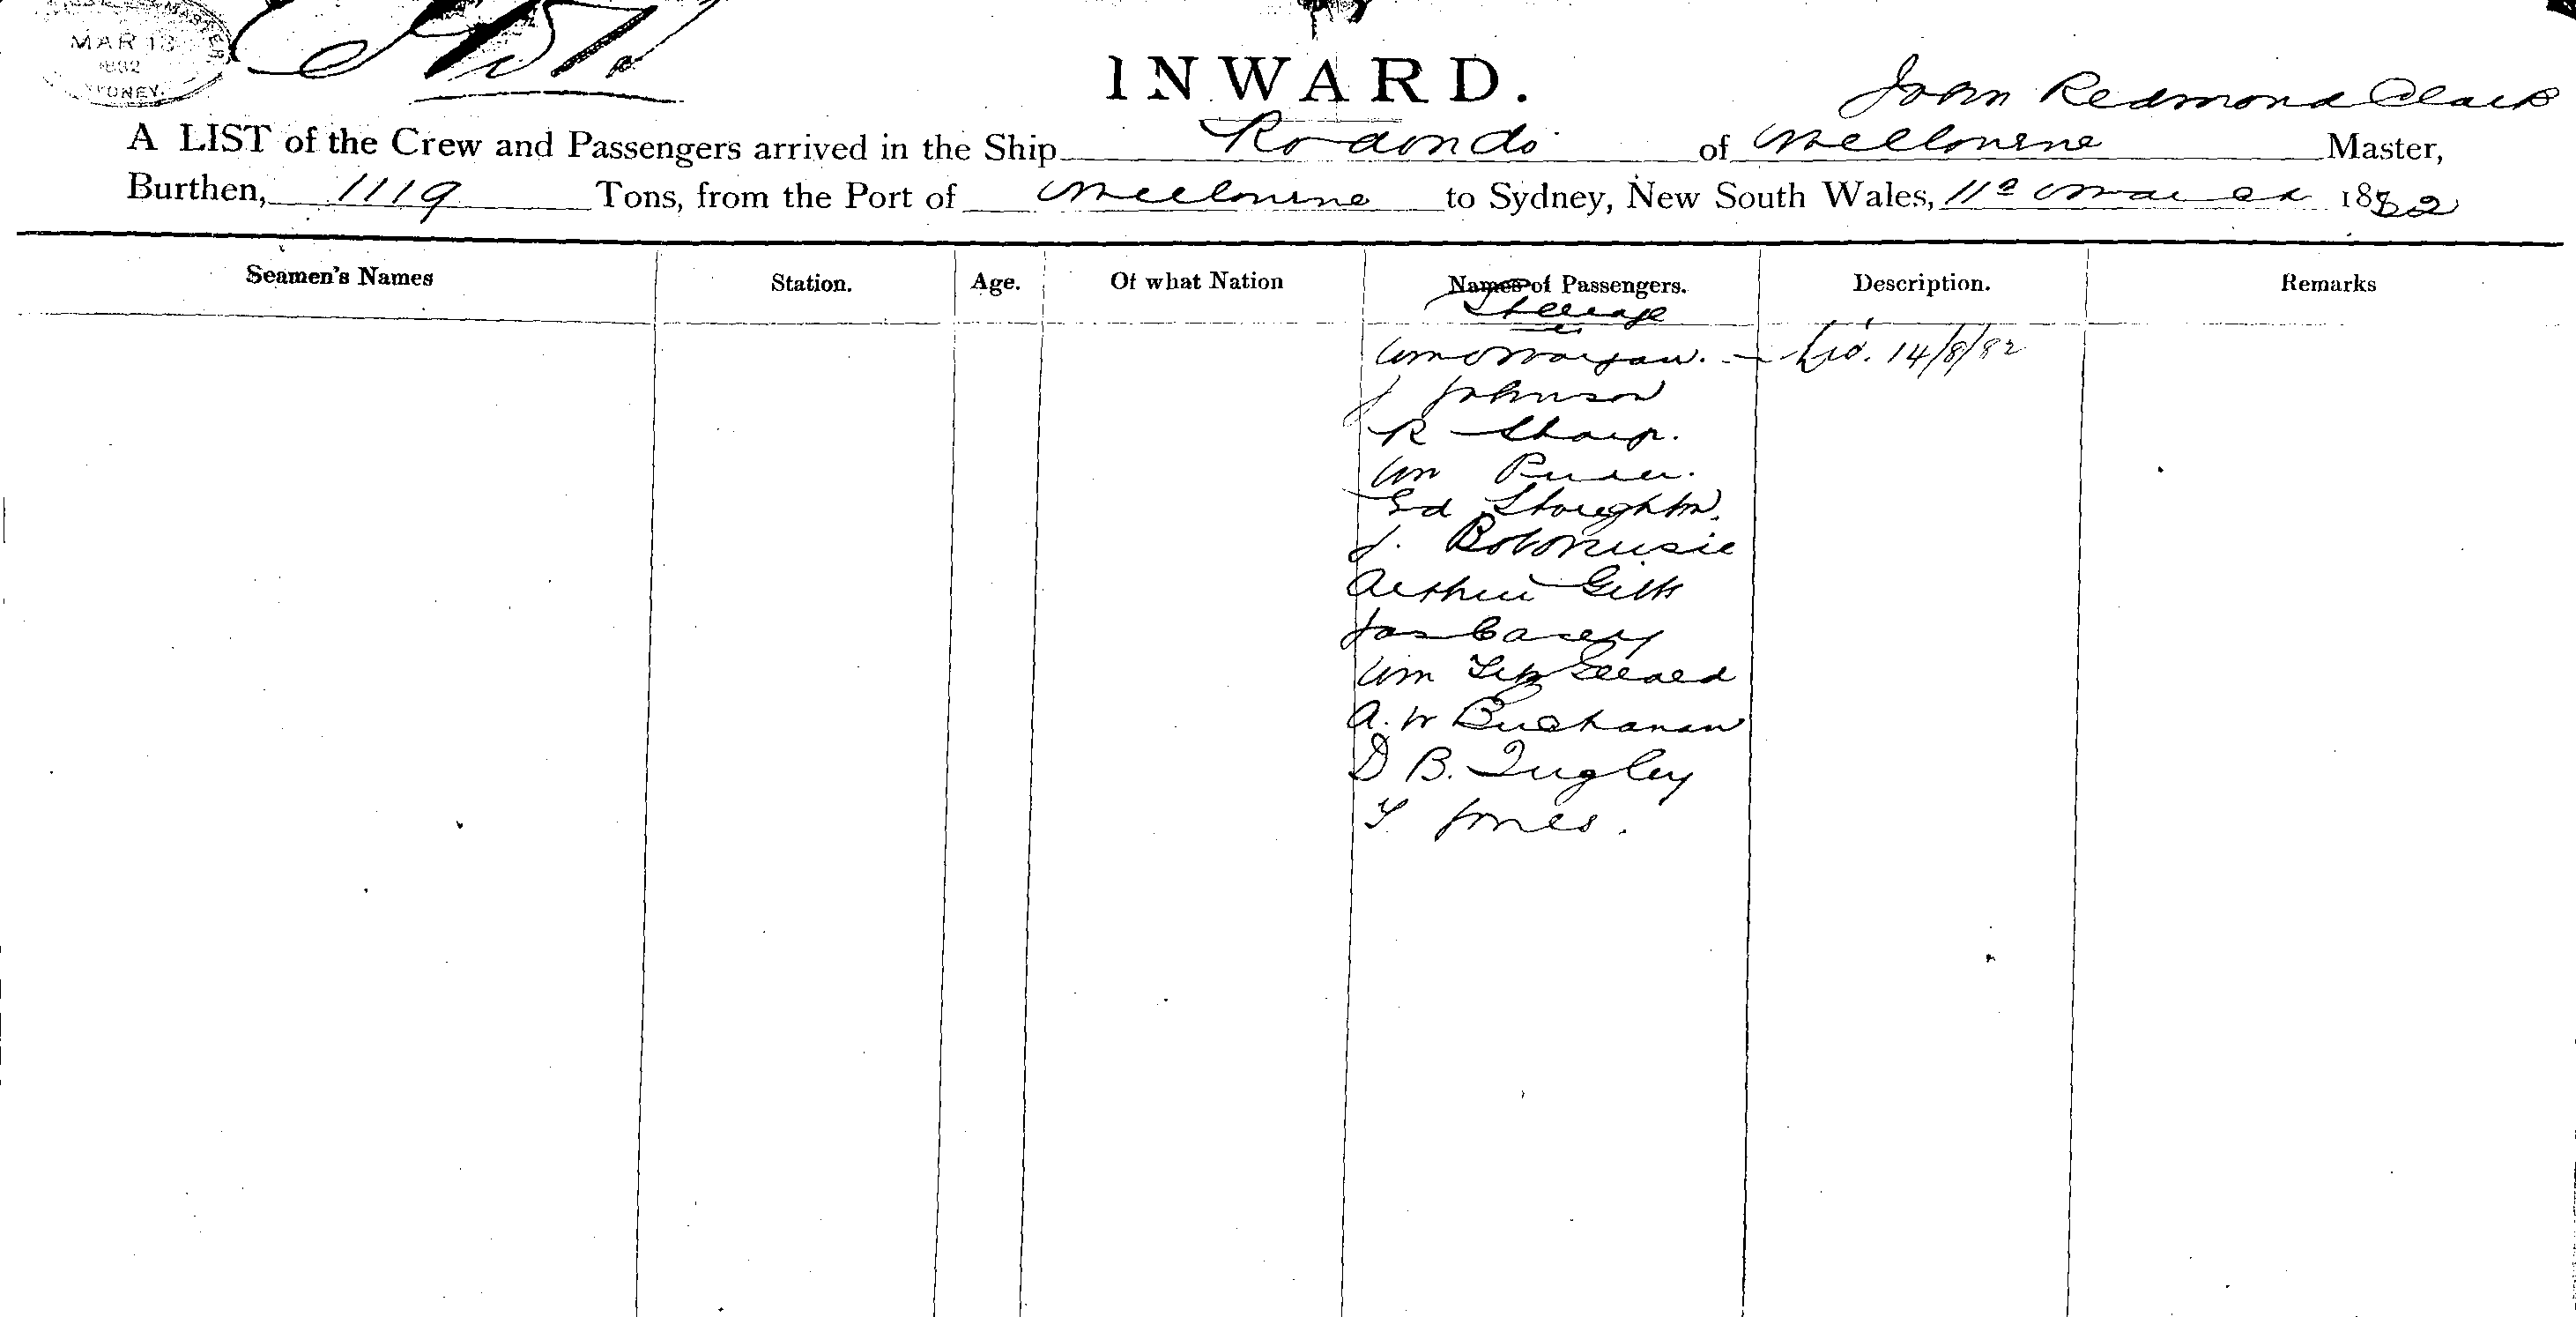 MAR 13
1882
SYDNEY.
INWARD.
John Redmond Clark
A LIST of the Crew and Passengers arrived in the Ship Rodondo of Melbourne Master,
Burthen, 1119 Tons, from the Port of Melbourne to Sydney, New South Wales, 11th March 1882
Seamen's Names Station. Age. Of what Nation Names of Passengers. Description. Remarks
Steerage
Wm Morgan. 14/8/82
J Johnson
R Sharp.
Wm
Ed Stoughton.
J.
Arthur
Jas Casey
Wm
A. W Buchanan
D B. Quigley
Y Jones.